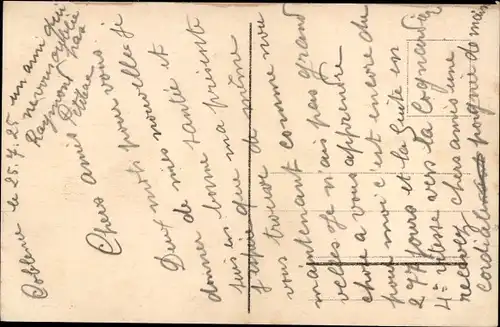 Coblence le 25.7.25
Chers amis
Deux mots pour vous
de mes nouvelles je
donner bonne santée et
suis en que ma présente
J'espère de même
vous trouver comme nou
maintenant pas grand
velles je n'ais
chose a vous apprendre
pour moi c'est encore du
277 jours et la fuite en
4e vitesse vers la Cognardière
recevez chers amis une
cordiale poignée de main
un ami qui
ne vous oublie
pas
Raymond